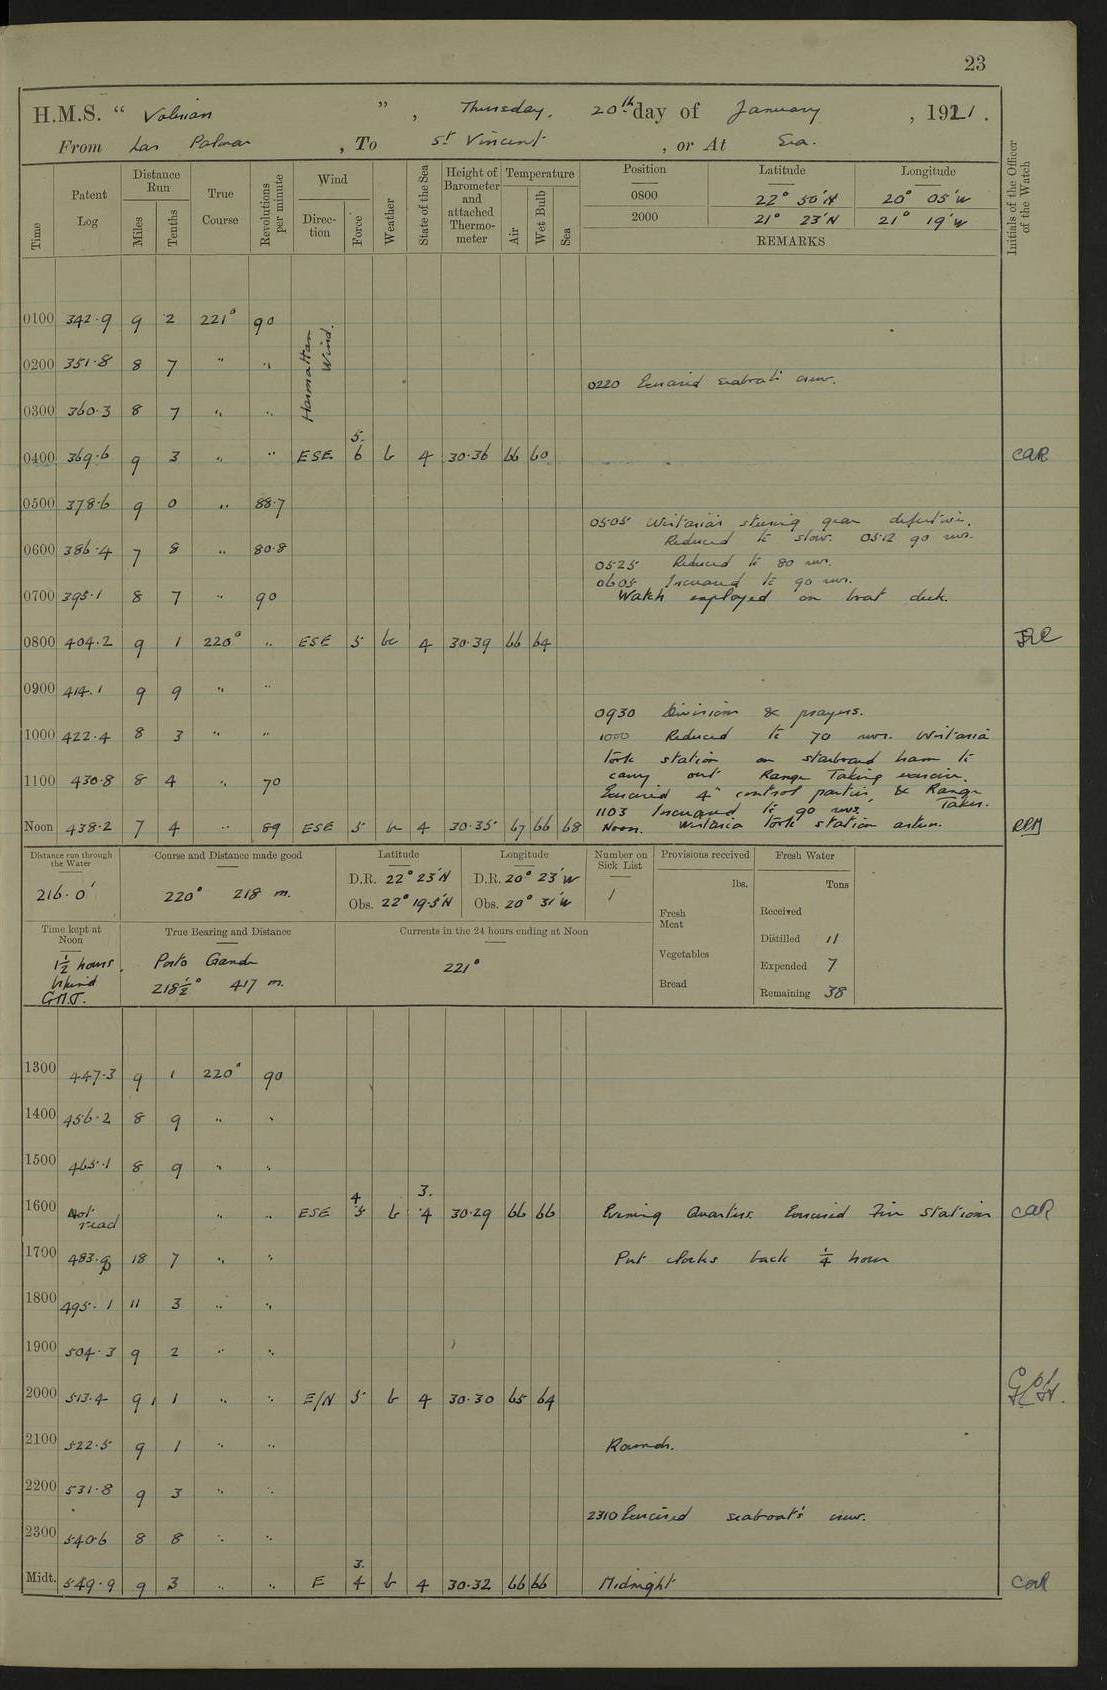 23
H.M.S. “ Valerian ” , Thursday, 20th day of January , 1921.
From Las Palmas , To St Vincent , or At Sea.
Time Patent Log Distance Run Miles Tenths True Course Revolutions per minute Wind Direction Force Weather State of the Sea Height of Barometer and attached Thermometer Temperature Air Wet Bulb Sea Position Latitude Longitude Initials of the Officer of the Watch
0800 22° 50'N 20° 05'W
2000 21° 23'N 21° 19'W
REMARKS
Harmattan Wind.
0100 342.9 9 2 221° 90
0200 351.8 8 7 " "
0220 Exercised seaboat's crew.
0300 360.3 8 7 " "
5.
0400 369.6 9 3 " " ESE 6 b 4 30.36 66 60 CAR
0500 378.6 9 0 " 88.7
0505 Wistaria's steering gear defective.
Reduced to slow. 0512 90 revs.
0600 386.4 7 8 " 80.8
0525 Reduced to 80 revs.
0605 Increased to 90 revs.
0700 395.1 8 7 " 90 Watch employed on boat deck.
0800 404.2 9 1 220° " ESE 5 bc 4 30.39 66 64
0900 414.1 9 9 " "
0930 Divisions & prayers.
1000 422.4 8 3 " " 1000 Reduced to 70 revs. Wistaria
took station on starboard beam to
1100 430.8 8 4 " 70 carry out Range Taking exercise.
Exercised 4" control parties, & Range Takers.
1103 Increased to 90 revs.
Noon 438.2 7 4 " 89 ESE 5 bc 4 30.35 67 66 68 Noon. Wistaria took station astern. RRM
Distance run through the Water Course and Distance made good Latitude Longitude Number on Sick List Provisions received Fresh Water
216.0' 220° 218 m. D.R. 22° 23'N D.R. 20° 23'W 1 lbs. Tons
Obs. 22° 19.5'N Obs. 20° 31'W
Fresh Meat Received
Time kept at Noon True Bearing and Distance Currents in the 24 hours ending at Noon
Distilled 11
1½ hours behind G.M.T. Porto Grande 218½° 417 m. 221°
Vegetables Expended 7
Bread Remaining 38
1300 447.3 9 1 220° 90
1400 456.2 8 9 " "
1500 465.1 8 9 " "
4 3.
1600 Not read " " ESE 5 b 4 30.29 66 66 Evening Quarters. Exercised Fire Stations CAR
1700 483.8 18 7 " " Put clocks back ¼ hour
1800 495.1 11 3 " "
1900 504.3 9 2 " "
2000 513.4 9 1 " " E/N 5 b 4 30.30 65 64
2100 522.5 9 1 " " Rounds.
2200 531.8 9 3 " "
2310 Exercised seaboat's crew.
2300 540.6 8 8 " "
3.
Midt. 549.9 9 3 " " E 4 b 4 30.32 66 66 Midnight CAR